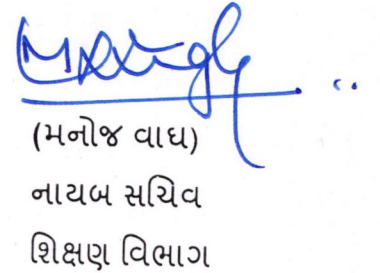 (મનોજ વાઘ)
નાયબ સચિવ
શિક્ષણ વિભાગ